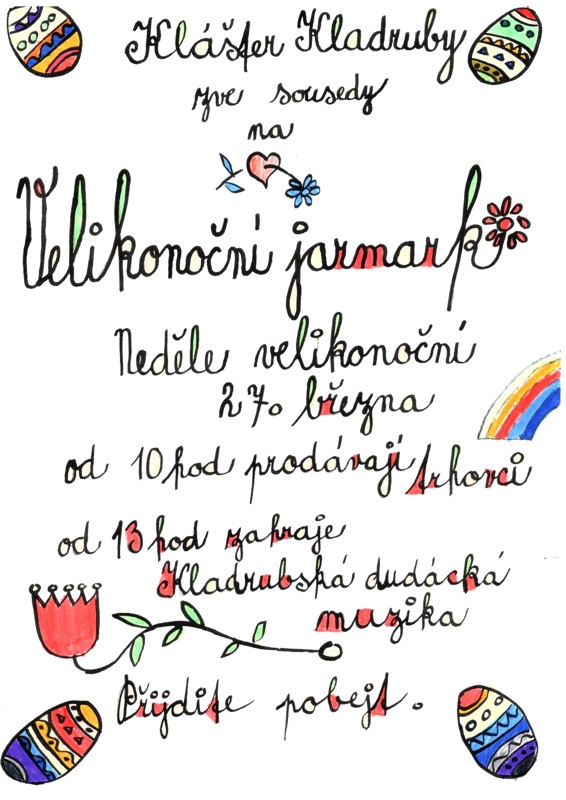 Klášter Kladruby
zve sousedy
na
Velikonoční jarmark
Neděle velikonoční
27. března
od 10 hod prodávají trhovci
od 13 hod zahraje
Kladrubská dudácká
muzika
Přijdite pobejt.